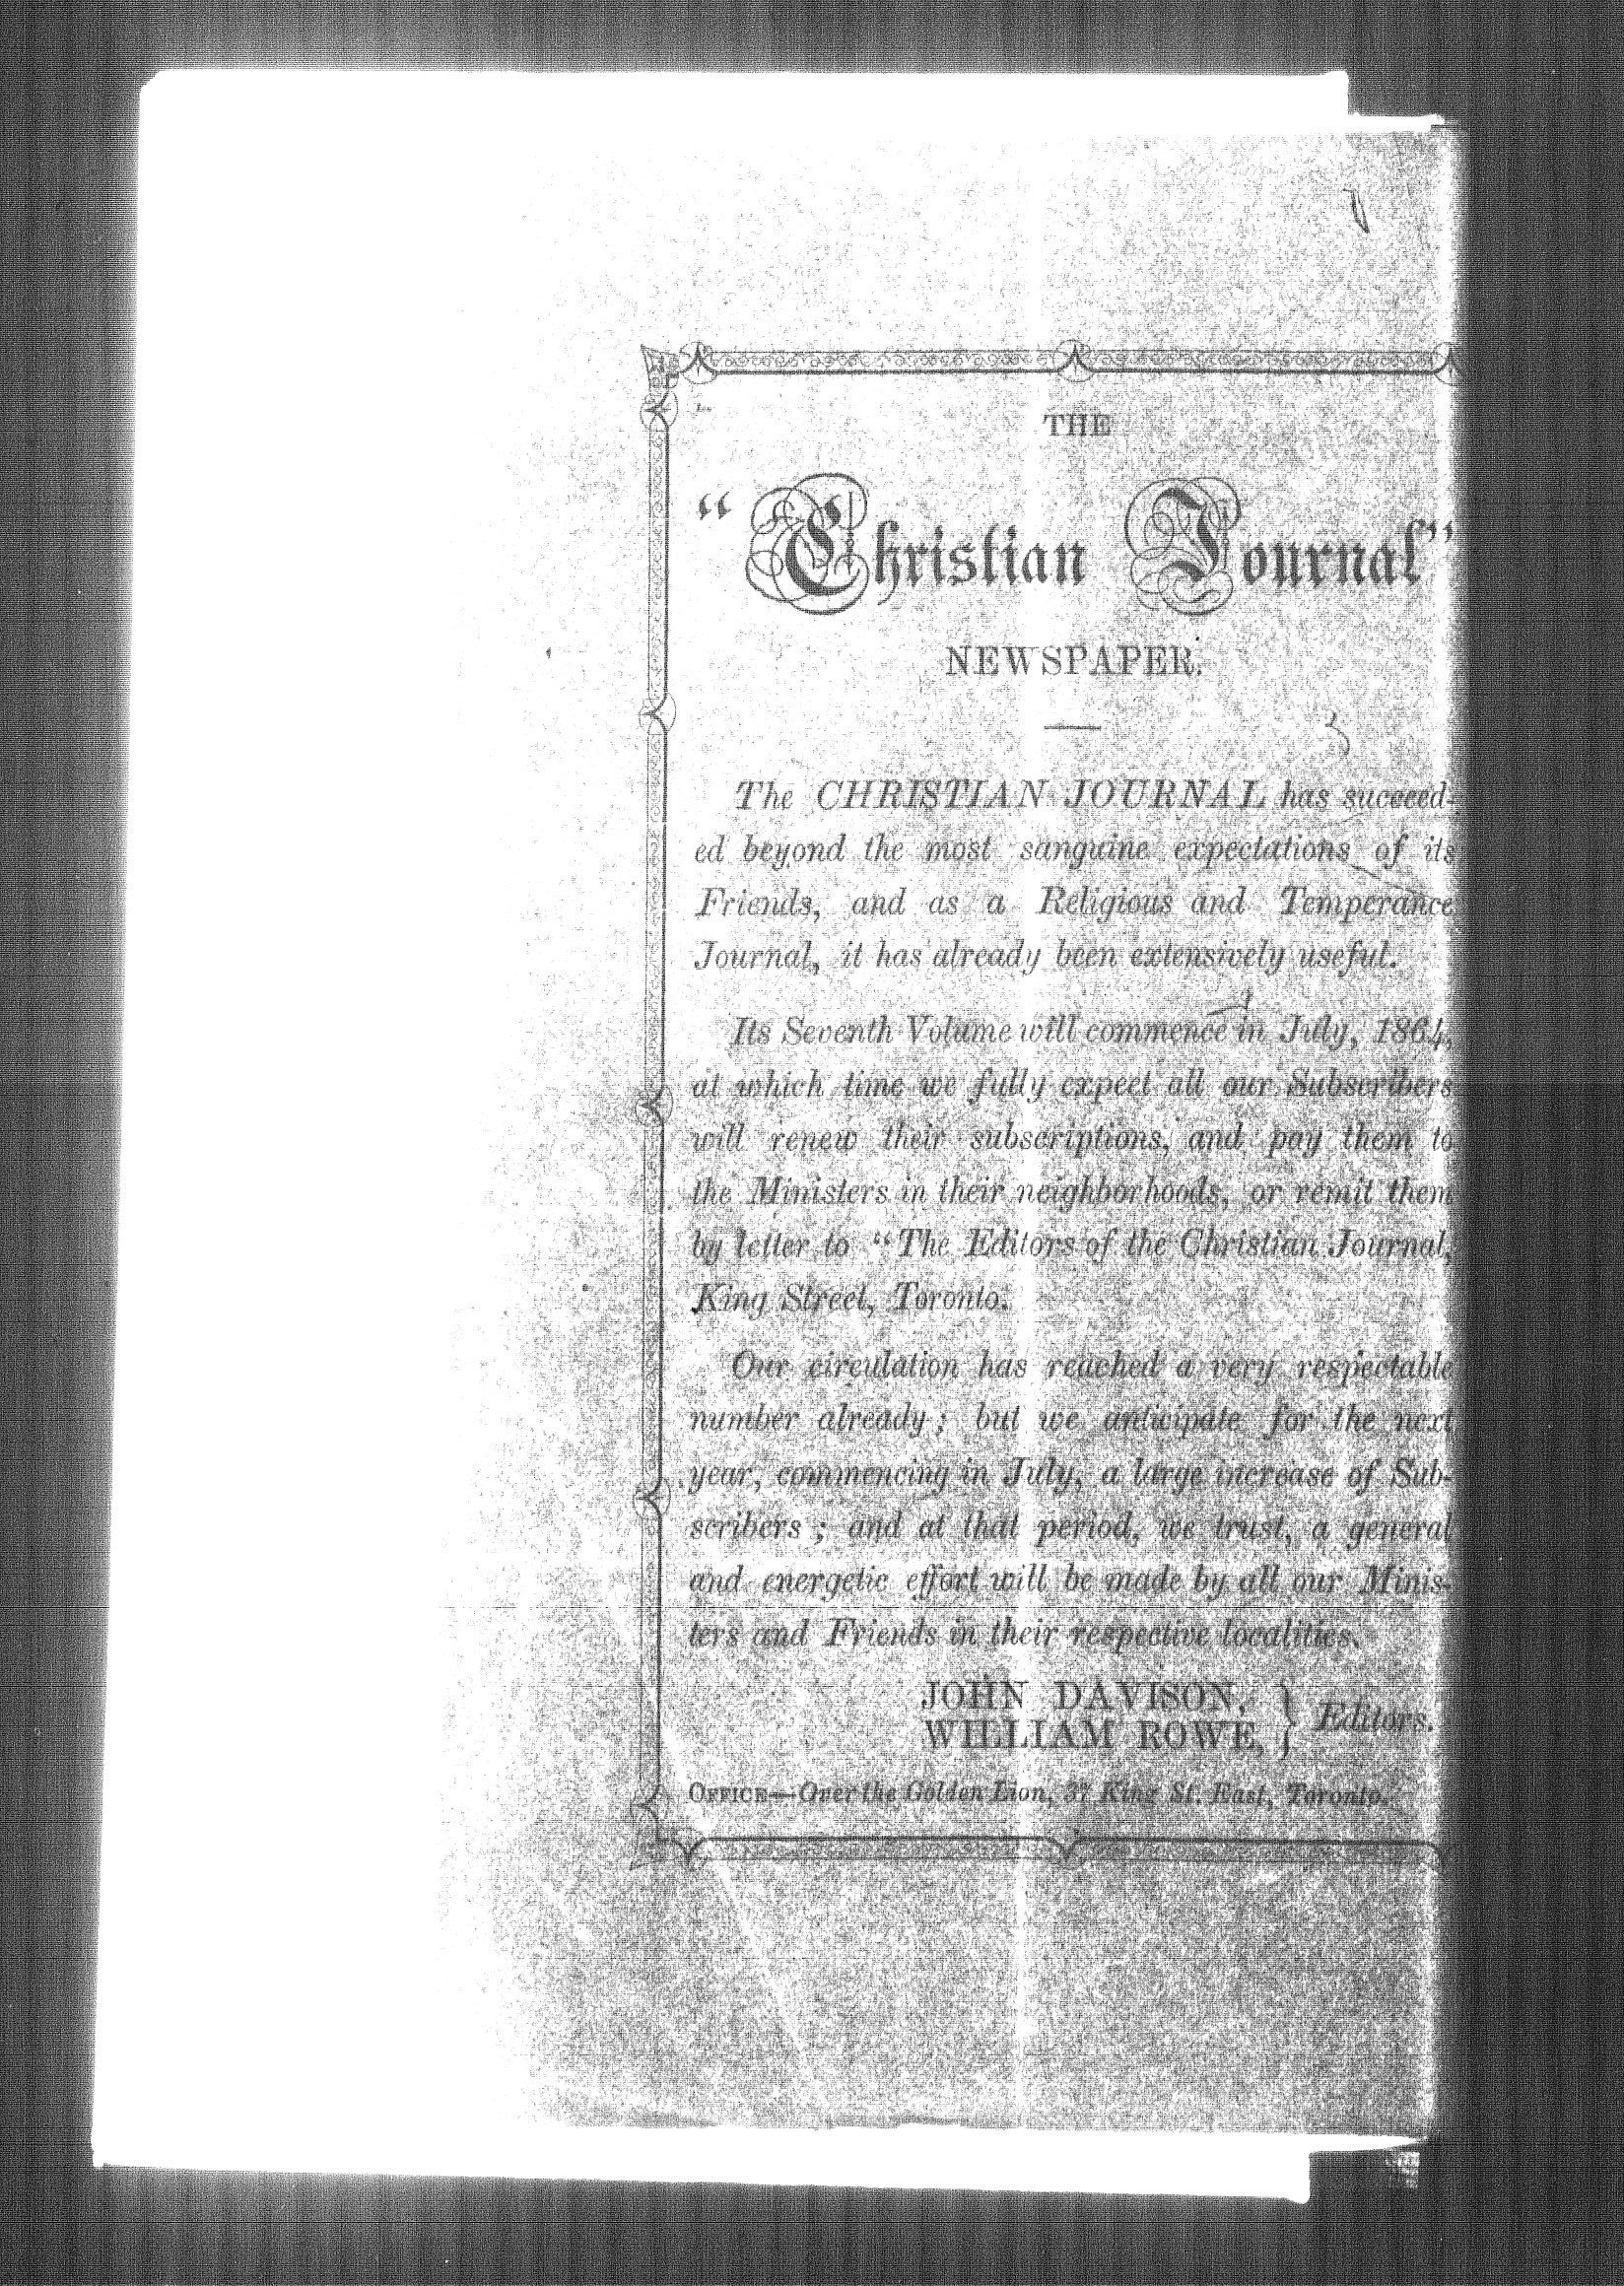 THE
"Christian Journal"
NEWSPAPER.
The CHRISTIAN JOURNAL has succeed-
ed beyond the most sanguine expectations of its
Friends, and as a Religious and Temperance
Journal, it has already been extensively useful.
Its Seventh Volume will commence in July, 1864,
at which time we fully expect all our Subscribers
will renew their subscriptions, and pay them to
the Ministers in their neighborhoods, or remit them
by letter to "The Editors of the Christian Journal,
King Street, Toronto.
Our circulation has reached a very respectable
number already; but we anticipate for the next
year, commencing in July, a large increase of Sub-
scribers; and at that period, we trust, a general
and energetic effort will be made by all our Minis-
ters and Friends in their respective localities.
JOHN DAVISON,
WILLIAM ROWE, } Editors.
OFFICE—Over the Golden Lion, 37 King St. East, Toronto.